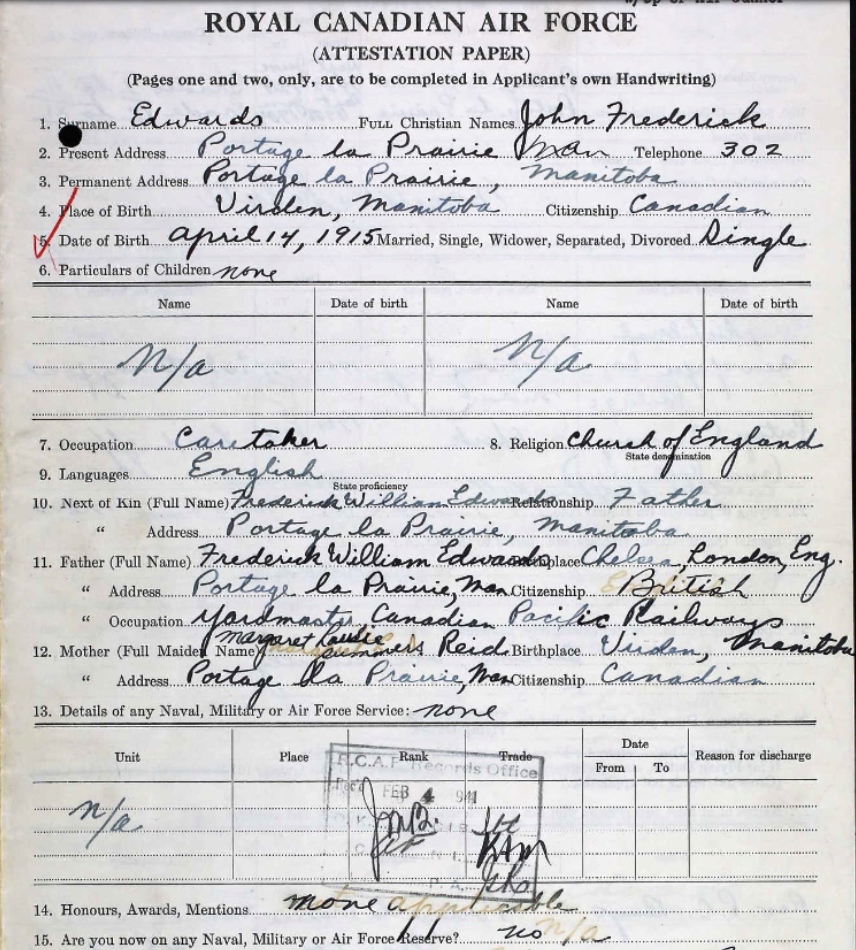 ROYAL CANADIAN AIR FORCE
(ATTESTATION PAPER)
(Pages one and two, only, are to be completed in Applicant's own Handwriting)
1. Surname Edwards FULL Christian Names John Frederick
2. Present Address Portage la Prairie Man Telephone 302
3. Permanent Address Portage la Prairie, Manitoba
4. Place of Birth Virden, Manitoba Citizenship Canadian
5. Date of Birth April 14, 1915 Married, Single, Widower, Separated, Divorced Single
6. Particulars of Children none
Name Date of birth Name Date of birth
N/a N/a
7. Occupation Caretaker 8. Religion Church of England
State denomination
9. Languages English
State proficiency
10. Next of Kin (Full Name) Frederick William Edwards Relationship Father
" Address Portage la Prairie, Manitoba
11. Father (Full Name) Frederick William Edwards Birthplace Chelsea, London, Eng.
" Address Portage la Prairie, Man Citizenship British
" Occupation Yardmaster, Canadian Pacific Railways
Margaret
12. Mother (Full Maiden Name) Summers Reid Birthplace Virden, Manitoba
" Address Portage la Prairie, Man Citizenship Canadian
13. Details of any Naval, Military or Air Force Service: none
Date
Unit Place Rank Trade From To Reason for discharge
R.C.A.F. Records Office
Rec'd FEB 4 1941
n/a
14. Honours, Awards, Mentions none applicable
15. Are you now on any Naval, Military or Air Force Reserve? no n/a